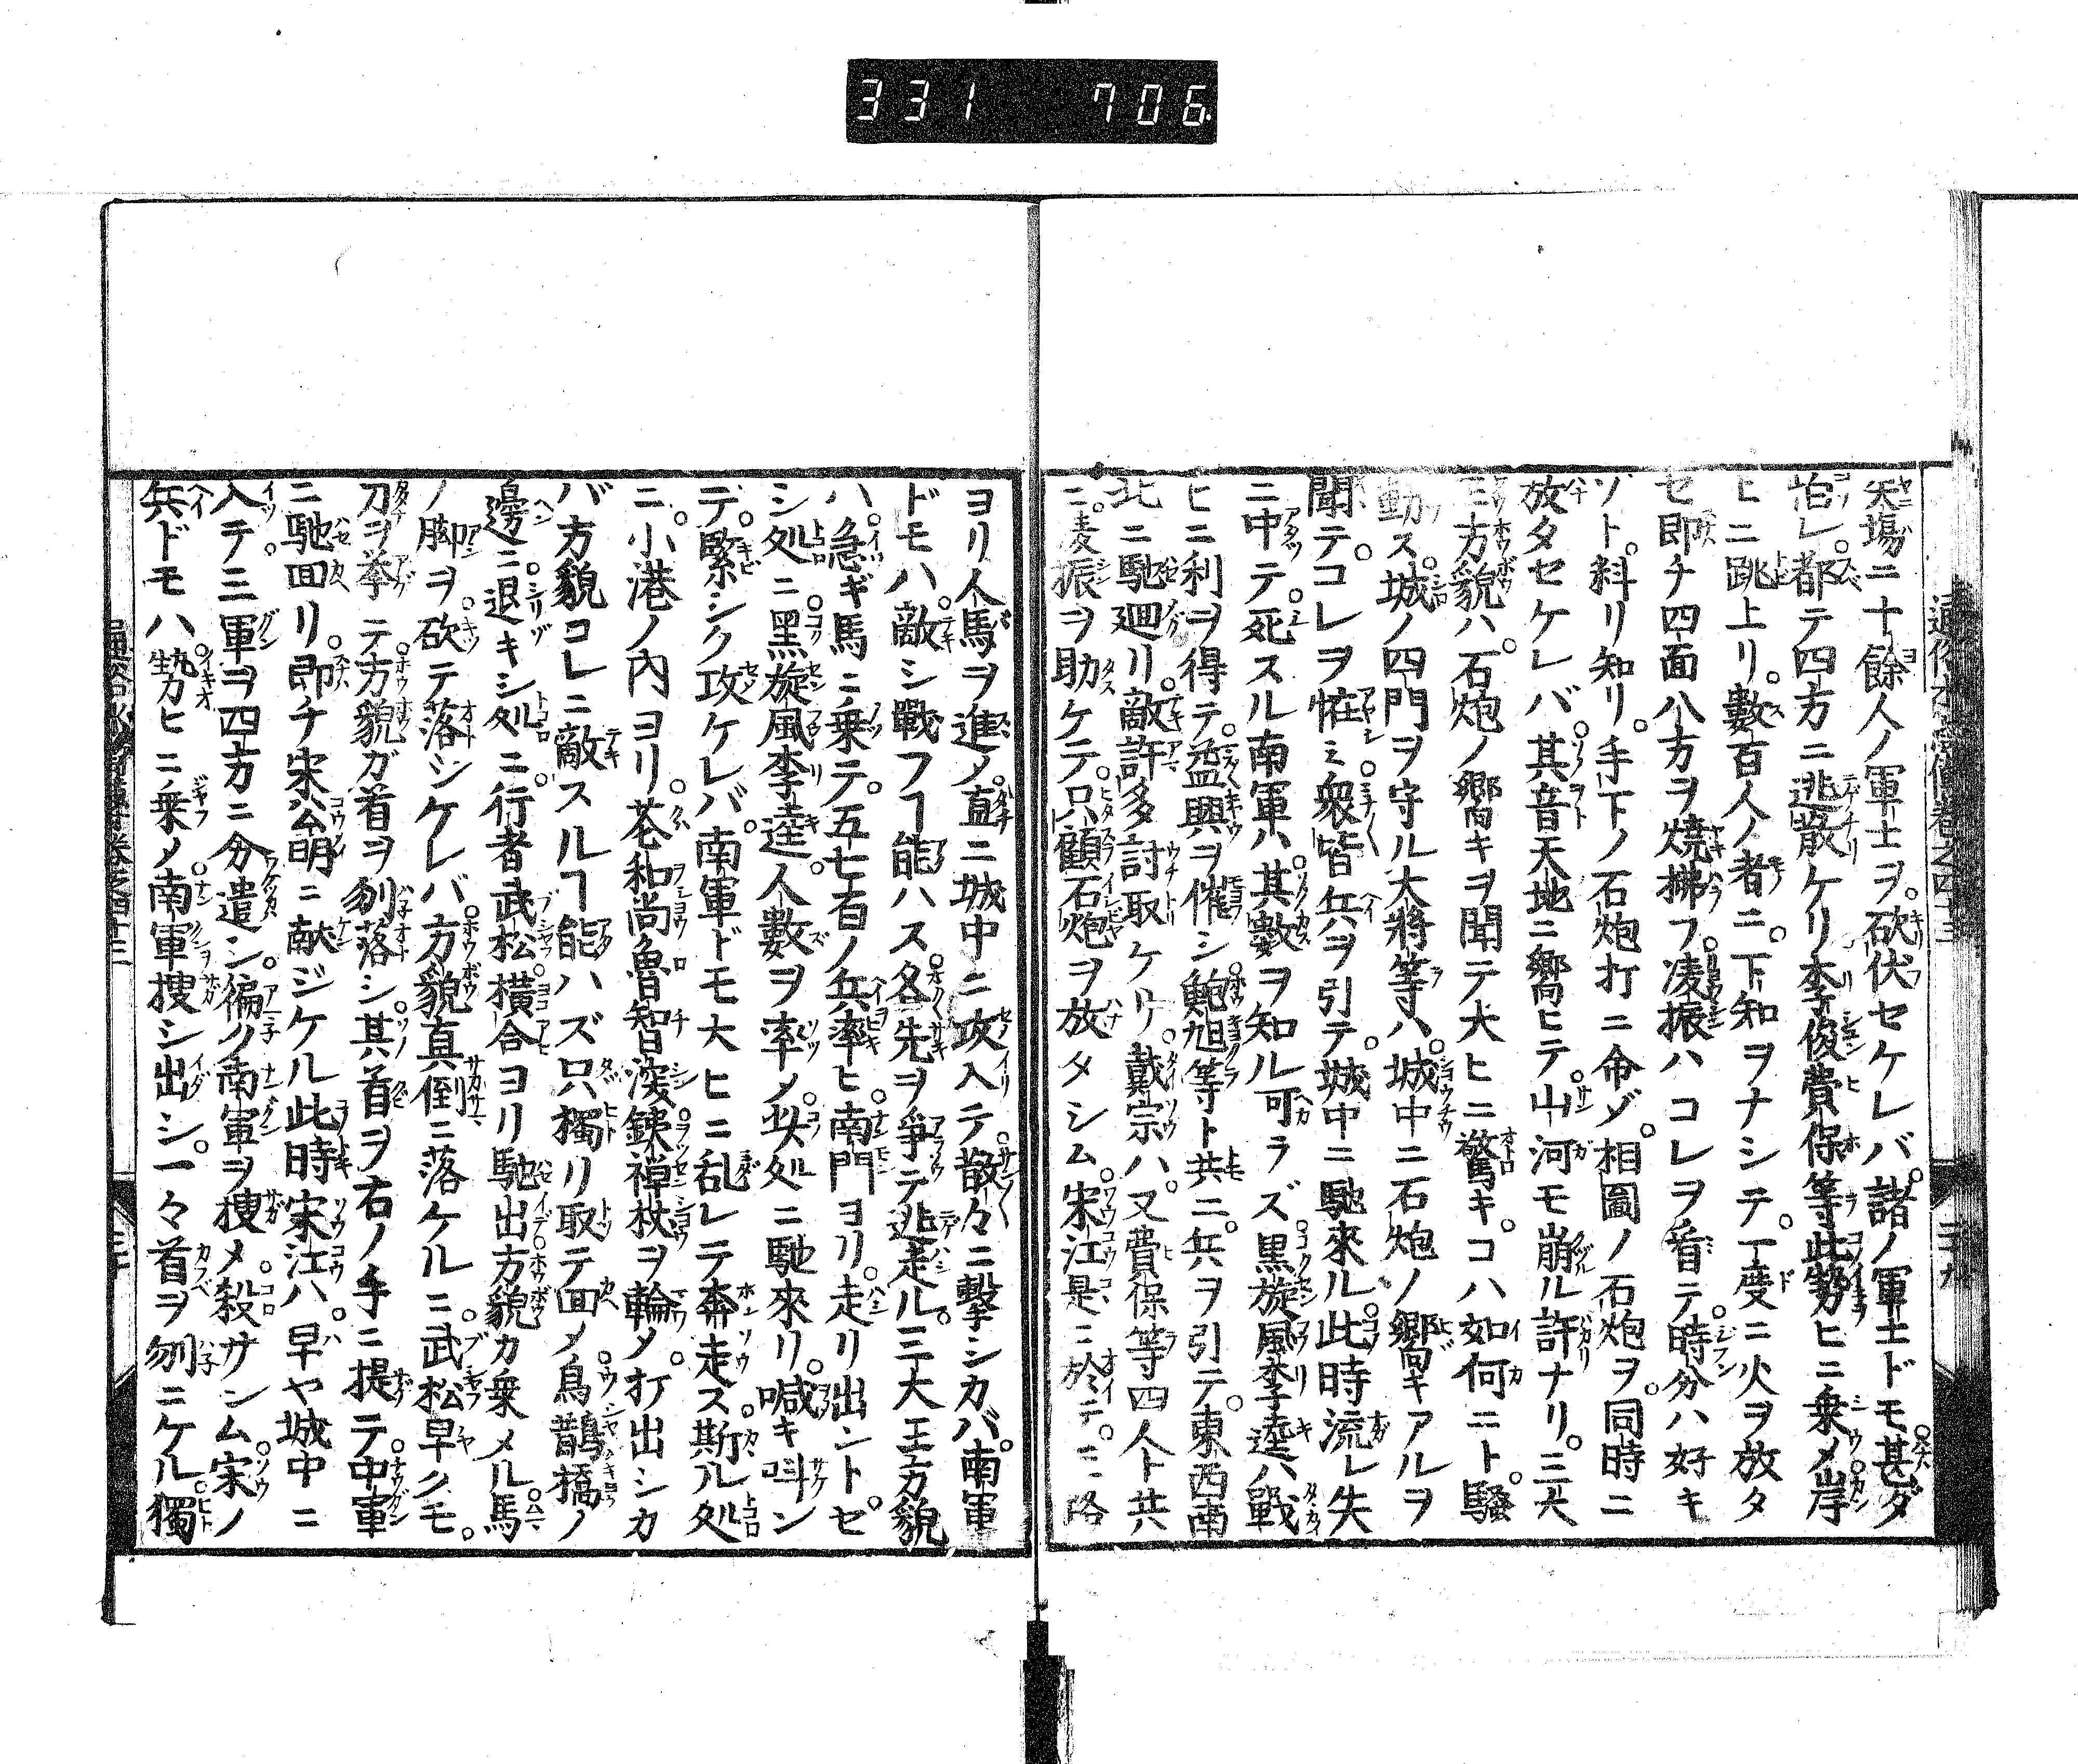 331 706
矢塲ニ十餘人ノ軍士ヲ。砍伏セケレバ。諸ノ軍士ドモ甚ダ
怕レ。都テ四方ニ逃散ケリ李俊費保等此勢ヒニ乗メ岸
ヒニ跳上リ。數百人ノ者ニ。下知ヲナシテ。一度ニ火ヲ放タ
セ即チ四面八方ヲ燒拂フ。凌振ハコレヲ看テ。時分ハ好キ
ゾト。料リ知リ。手下ノ石炮打ニ命ゾ。相圖ノ石炮ヲ。同時ニ
放タセケレバ。其音天地ニ響ヒテ。山河モ崩ル許ナリ。三大
王方貌ハ。石炮ノ響キヲ聞テ大ヒニ驚キ。コハ如何ニト。騒
動ス。城ノ四門ヲ守ル大將等ハ。城中ニ石炮ノ響キアルヲ
聞テ。コレヲ恠ミ。衆皆兵ヲ引テ。城中ニ馳來ル。此時流レ矢
ニ中テ。死スル南軍ハ。其數ヲ知ル可ラズ。黒旋風李逵ハ。戰
ヒニ利ヲ得テ。益興ヲ催シ。鮑旭等ト共ニ。兵ヲ引テ。東西南
北ニ馳廻リ。敵許多討取ケリ。戴宗ハ。又費保等四人ト共
ニ。凌振ヲ助ケテ。只顧石炮ヲ放タシム。宋江是ニ於テ。三路
ヨリ人馬ヲ進メ。直ニ城中ニ攻入テ。散々ニ擊シカバ。南軍
ドモハ。敵シ戰フヿ能ハス。各先ヲ爭テ逃走ル。三大王方貌
ハ。急ギ馬ニ乗テ。五七百ノ兵率ヒ。南門ヨリ。走リ出ントゼ
シ処ニ。黑旋風李逵。人數ヲ率メ。此処ニ馳來リ。喊キ呌ン
デ。緊シク攻ケレバ。南軍ドモ大ヒニ乱レテ奔走ス。斯ル処
ニ。小港ノ內ヨリ。花和尚魯智深。銕禅杖ヲ輪メ。打出シカ
バ方貌コレニ敵スルヿ能ハズ只獨リ取テ囬メ。烏鵲橋ノ
邊ニ。退キシ処ニ。行者武松。橫合ヨリ馳出。方貌カ乗メル。馬
ノ脚ヲ。砍テ落シケレバ。方貌真倒ニ落ケルニ。武松早クモ。
刀ヲ挙テ。方貌ガ首ヲ刎落シ。其首ヲ右ノ手ニ提テ。中軍
ニ馳囬リ。即チ宋公明ニ献ジケル此時宋江ハ。早ヤ城中ニ
入テ。三軍ヲ四方ニ分遣シ。徧ク南軍ヲ捜メ。殺サシム宋ノ
兵ドモハ。勢ヒニ乗メ。南軍捜シ出シ。一々首ヲ刎ニケル。獨